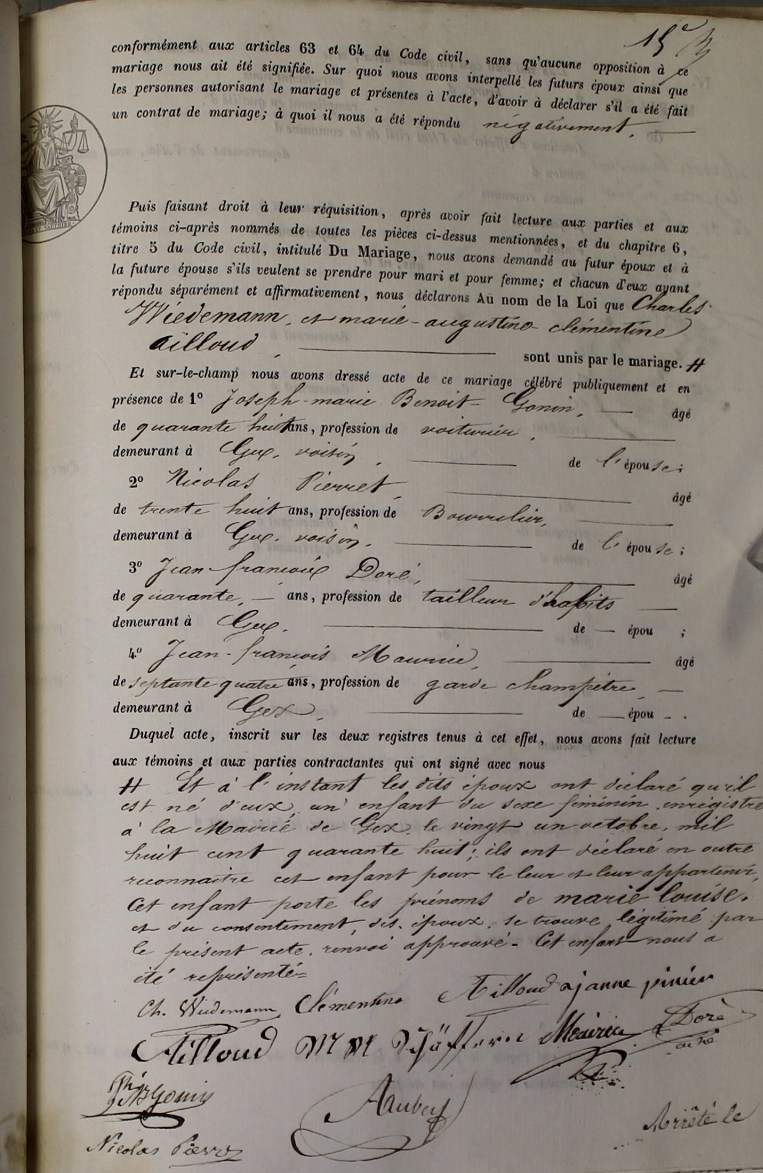 15e
conformément aux articles 63 et 64 du Code civil, sans qu'aucune opposition à ce
mariage nous ait été signifiée. Sur quoi nous avons interpellé les futurs époux ainsi que
les personnes autorisant le mariage et présentes à l'acte, d'avoir à déclarer s'il a été fait
un contrat de mariage; à quoi il nous a été répondu négativement.
Puis faisant droit à leur réquisition, après avoir fait lecture aux parties et aux
témoins ci-après nommés de toutes les pièces ci-dessus mentionnées, et du chapitre 6,
titre 5 du Code civil, intitulé Du Mariage, nous avons demandé au futur époux et à
la future épouse s'ils veulent se prendre pour mari et pour femme; et chacun d'eux ayant
répondu séparément et affirmativement, nous déclarons Au nom de la Loi que Charles
Wiedemann, et marie-augustine clémentine
ailloud, sont unis par le mariage. #
Et sur-le-champ nous avons dressé acte de ce mariage célébré publiquement et en
présence de 1º Joseph-marie Benoit Gonin, âgé
de quarante huit ans, profession de voiturier,
demeurant à Gex, voisin, de l'épouse;
2º Nicolas Pierret, âgé
de trente huit ans, profession de Bourrelier,
demeurant à Gex, voisin, de l'épouse;
3º Jean-francois Doré, âgé
de quarante, ans, profession de tailleur d'habits
demeurant à Gex. de épou ;
4º Jean-francois Maurice, âgé
de septante quatre ans, profession de garde champêtre,
demeurant à Gex, de épou .
Duquel acte, inscrit sur les deux registres tenus à cet effet, nous avons fait lecture
aux témoins et aux parties contractantes qui ont signé avec nous
# Et à l'instant les dits époux ont déclaré qu'il
est né d'eux, un enfant du sexe féminin, enregistré
à la Mairie de Gex, le vingt un octobre, mil
huit cent quarante huit; ils ont déclaré en outre
reconnaitre cet enfant pour le leur et leur appartenir,
Cet enfant porte les prénoms de marie louise,
et du consentement, des époux, se trouve légitimé par
le présent acte. renvoi approuvé - Cet enfant nous a
été représenté=
Ch. Wiedemann, Clémentine Ailloud jeanne
Ailloud Doré
Gonin Aubey Arrêté le
Nicolas Pierre